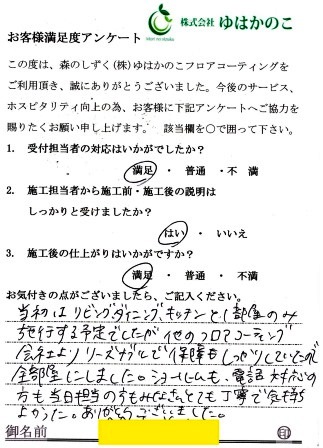 株式会社 ゆはかのこ
お客様満足度アンケート
この度は、森のしずく(株)ゆはかのこフロアコーティングを
ご利用頂き、誠にありがとうございました。今後のサービス、
ホスピタリティ向上の為、お客様に下記アンケートへご協力を
賜りたくお願い申し上げます。 該当欄を○で囲って下さい。
1. 受付担当者の対応はいかがでしたか?
満足 ・ 普通 ・ 不 満
2. 施工担当者から施工前・施工後の説明は
しっかりと受けましたか?
はい ・ いいえ
3. 施工後の仕上がりはいかがですか?
満足 ・ 普通 ・ 不満
お気付きの点がございましたら、ご記入ください。
当初は リビング、ダイニング、キッチンと1部屋のみ
施行する予定でしたが 他のフロアコーティング
会社より リーズナブルで 保障もしっかりしていたので
全部屋にしました。ショールームも、電話対応の
方も当日担当の方もみなさんとても丁寧で気持ち
よかった。ありがとうございました。
御名前 印